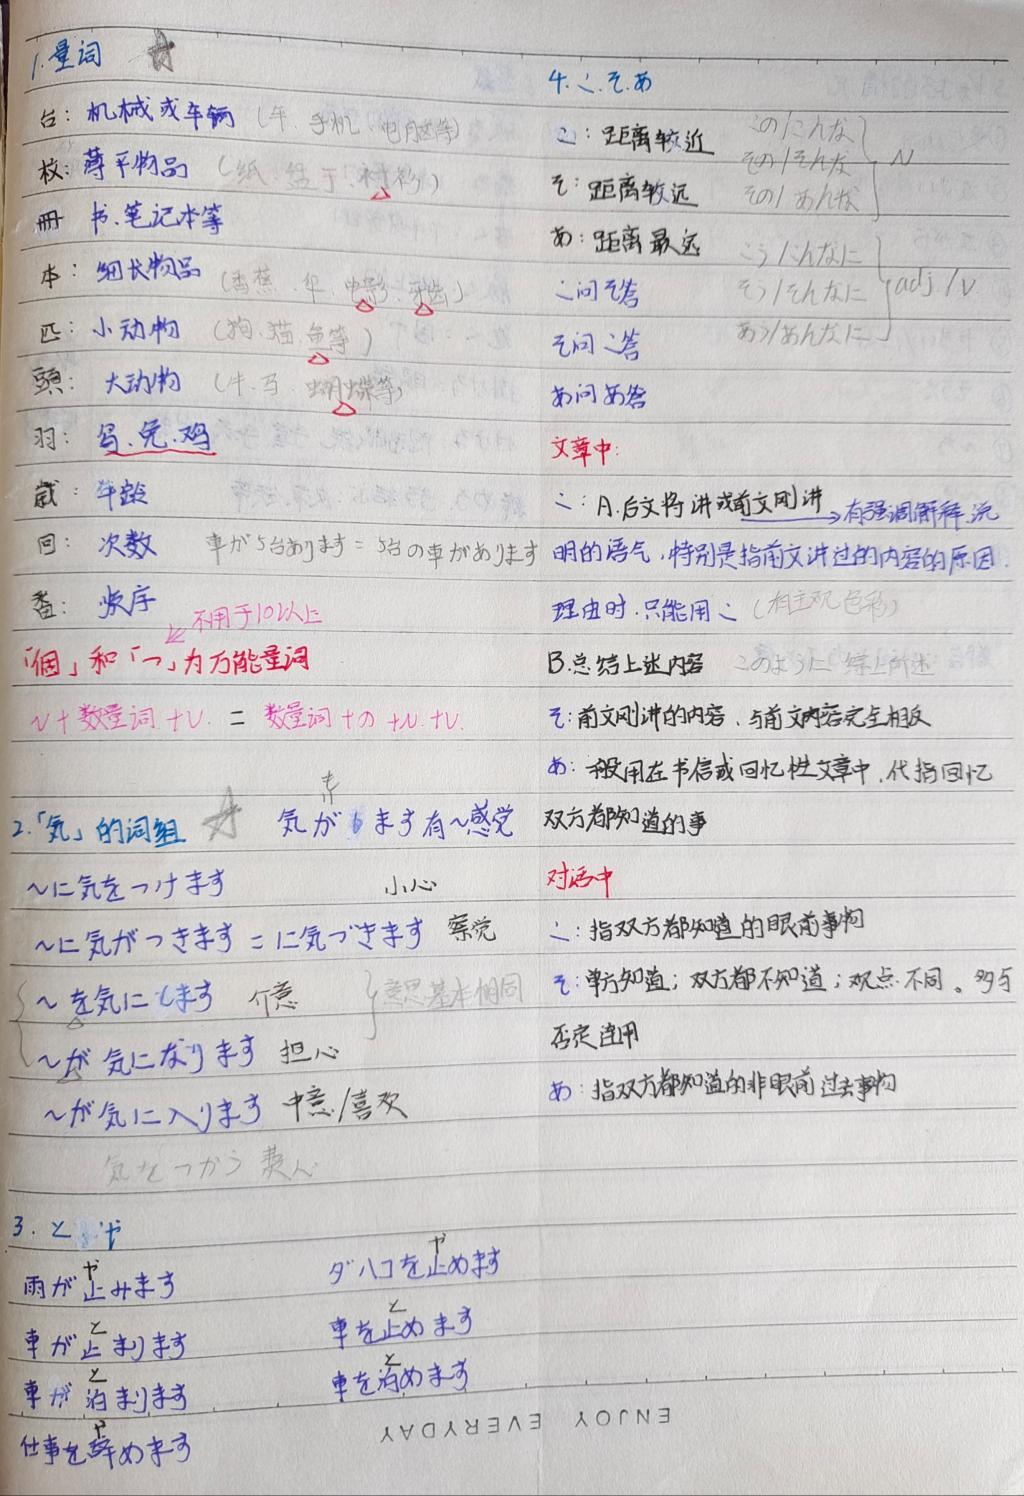 1.量词
台：机械或车辆（车.手机.电脑等）
枚：薄平物品（纸.盘子.衬衫）
冊 书.笔记本等
本：细长物品（香蕉.伞.电影.牙齿）
匹：小动物（狗.猫.鱼等）
頭：大动物（牛.马.蝴蝶等）
羽：鸟.兔.鸡
歳：年龄
回：次数 車が5台あります=5台の車があります
番：顺序
不用于10以上
「個」和「つ」为万能量词
N+数量词+V. = 数量词+の+N.+V.
2.「気」的词组 気がします 有~感觉
~に気をつけます 小心
~に気がつきます=に気づきます 察觉
~を気にします 介意
意思基本相同
~が気になります 担心
~が気に入ります 中意/喜欢
気をつかう 费心
3. と や
雨が止みます や
ダハコを止めます や
車が止まります と
車を止めます と
車が泊まります と
車を泊めます と
仕事を辞めます や
4.こ.そ.あ
こ：距离较近 この/こんな
そ：距离较远 その/そんな
その/あんな
N
あ：距离最远 こう/こんなに
こ问そ答 そう/そんなに
adj./v.
そ问こ答 あう/あんなに
あ问あ答
文章中：
こ：A.后文将讲或前文刚讲→有强调解释.说
明的语气，特别是指前文讲过的内容的原因.
理由时.只能用こ（有主观色彩）
B.总结上述内容 このように 综上所述
そ：前文刚讲的内容、与前文内容完全相反
あ：一般用在书信或回忆性文章中.代指回忆
双方都知道的事
对话中
こ：指双方都知道的眼前事物
そ：单方知道；双方都不知道；观点不同。多与
否定连用
あ：指双方都知道的非眼前过去事物
ENJOY EVERYDAY